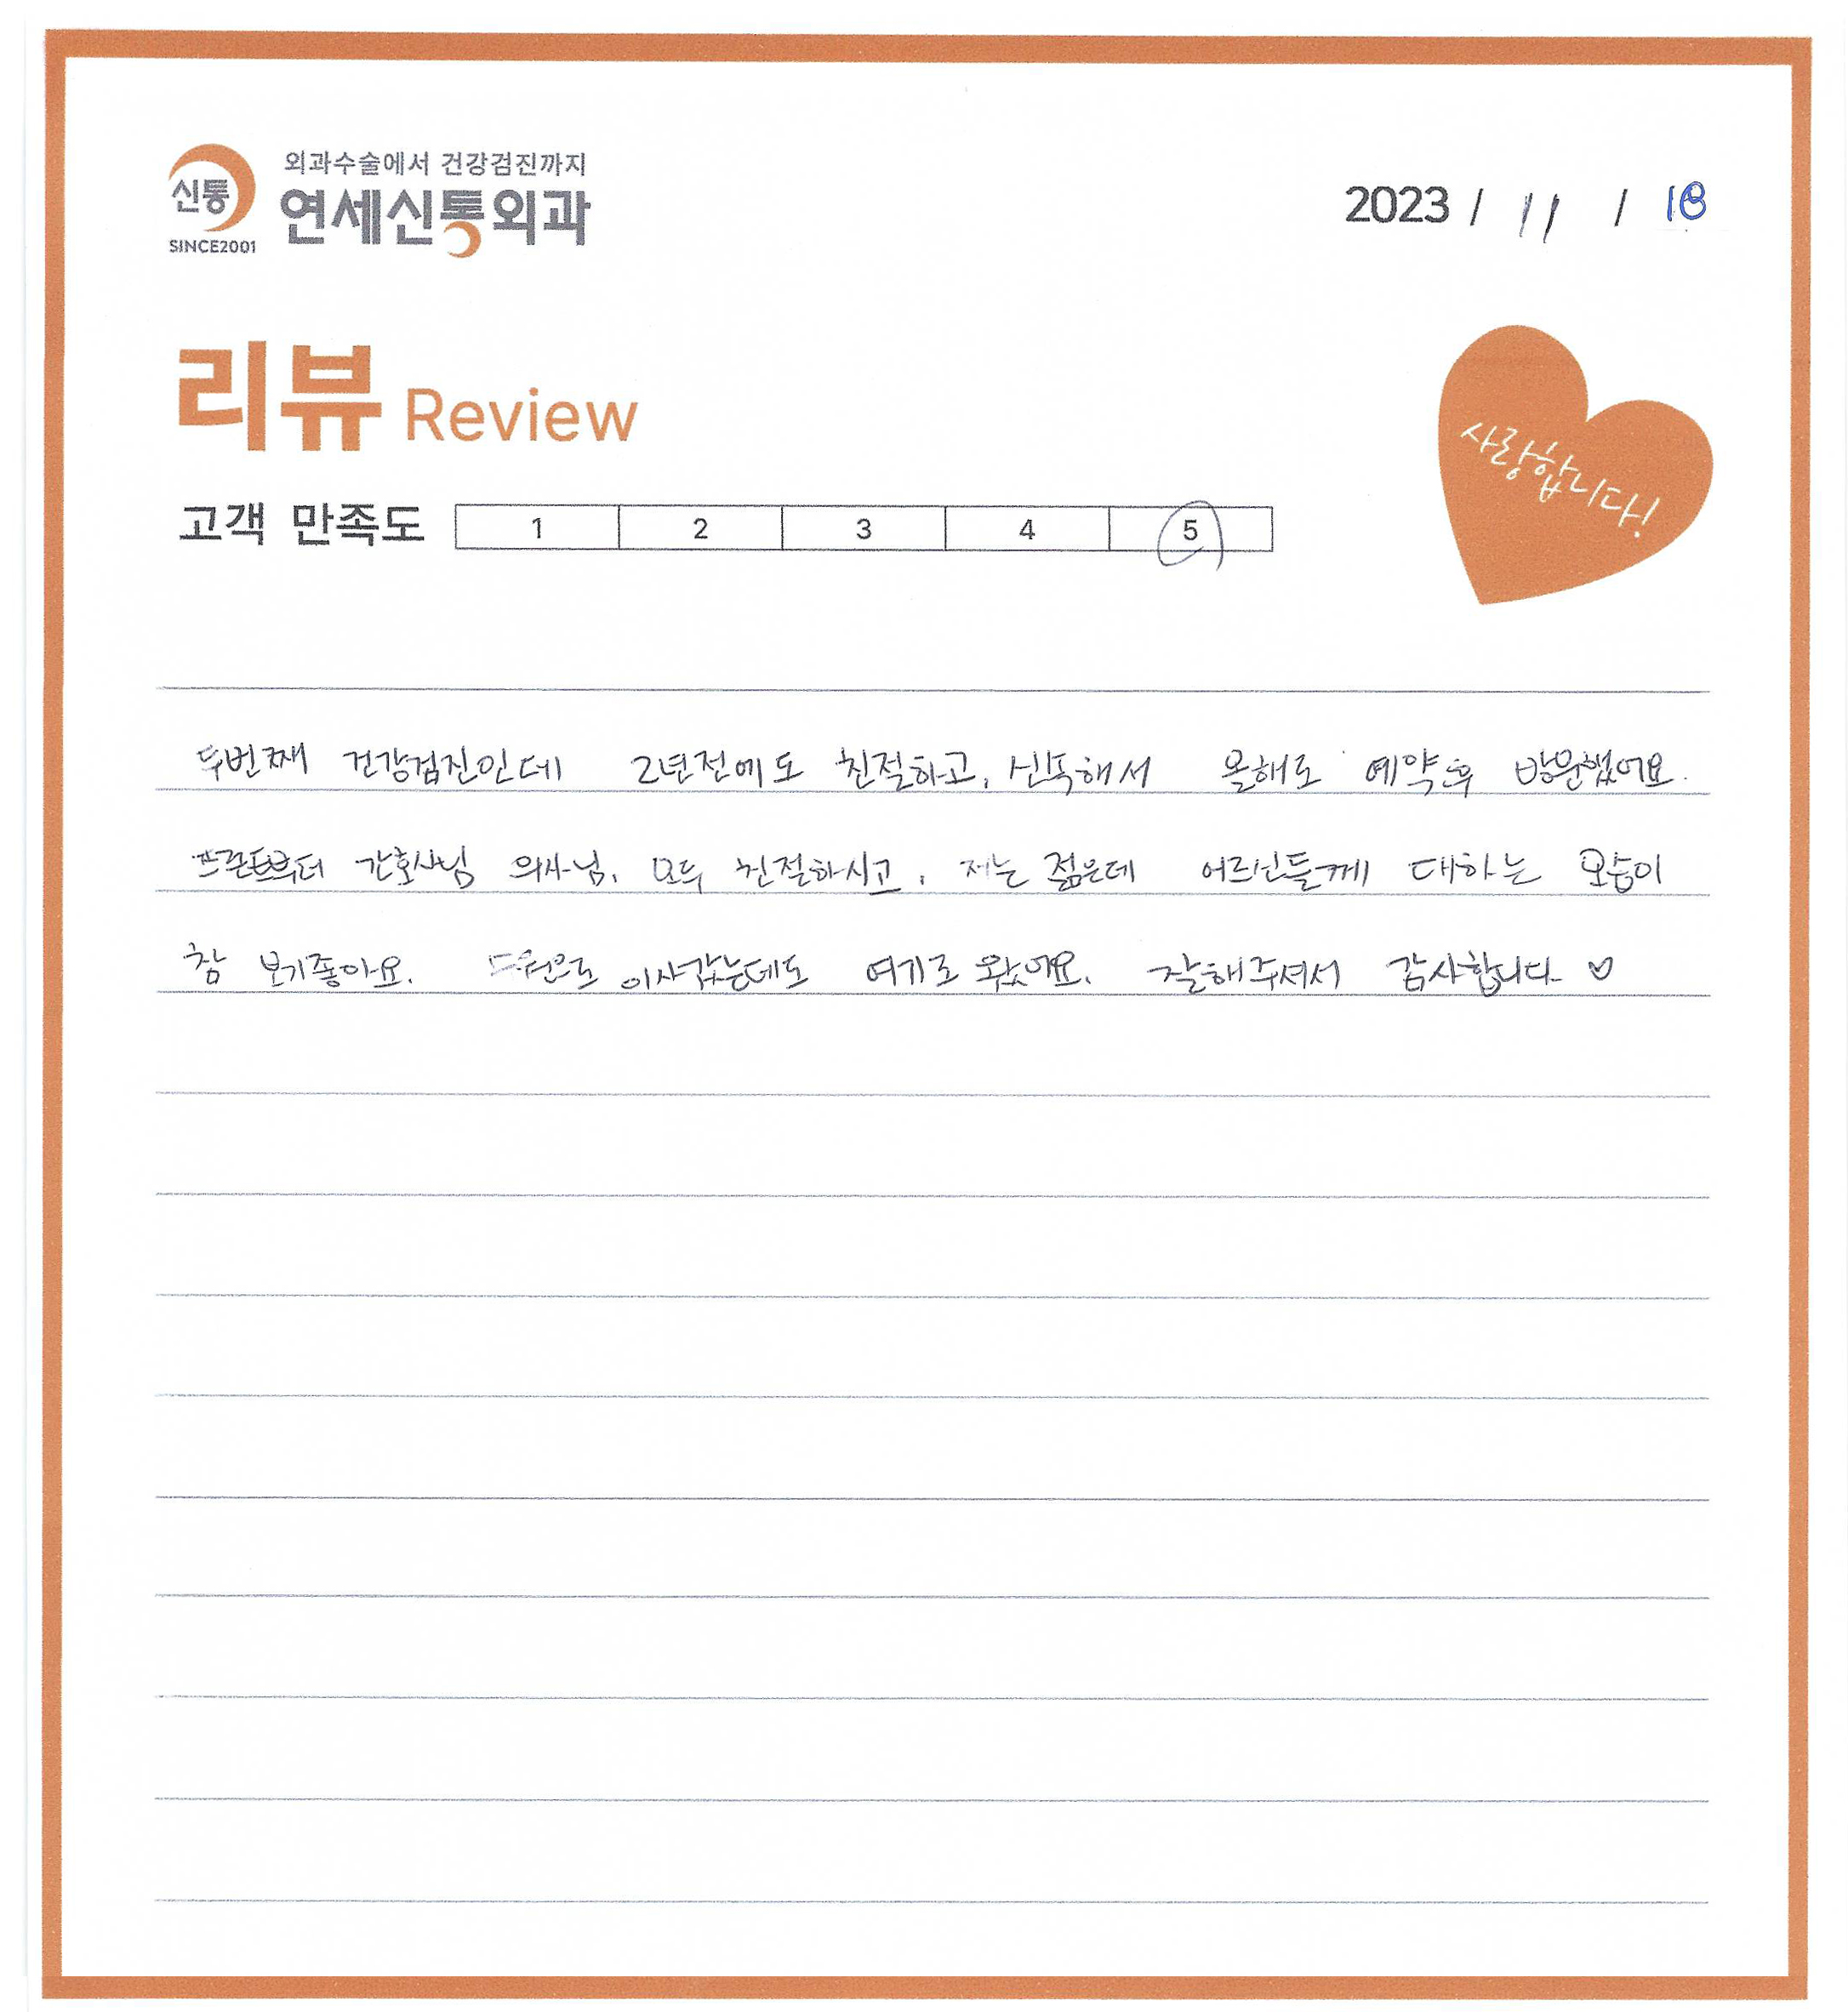 신통
SINCE2001
외과수술에서 건강검진까지
연세신통외과
2023 / 11 / 18
리뷰 Review
사랑합니다!
고객 만족도 1 2 3 4 5
두번째 건강검진인데 2년전에도 친절하고, 신속해서 올해도 예약후 방문했어요.
프론트부터 간호사님 의사님, 모두 친절하시고, 저는 젊은데 어르신들께 대하는 모습이
참 보기좋아요. 이사갔는데도 여기로 왔어요. 잘해주셔서 감사합니다 ♡